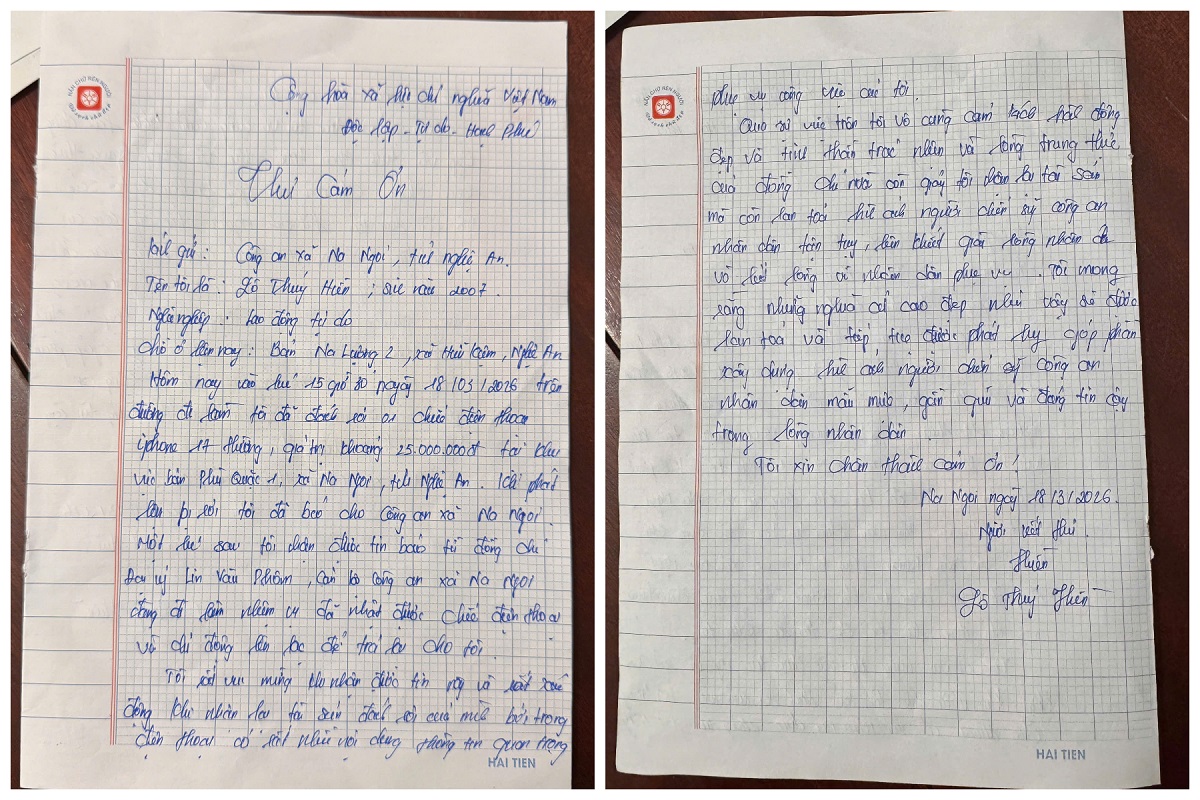 Cộng hòa xã hội chủ nghĩa Việt Nam
Độc lập - Tự do - Hạnh Phúc
Thư Cảm Ơn
Kính gửi : Công an xã Na Ngoi, tỉnh nghệ An.
Tên tôi là : Lô Thuý Hiền ; sinh năm 2007.
Nghề nghiệp : Lao động tự do
Chỗ ở hiện nay : Bản Na Lượng 2, xã Hữu Kiệm, Nghệ An
Hôm nay vào lúc 15 giờ 30 ngày 18/03/2026 trên
đường đi làm tôi đã đánh rơi 01 chiếc điện thoại
iphone 17 thường, giá trị khoảng 25.000.000đ tại khu
vực bản Phù Quặc 1, xã Na Ngoi, tỉnh Nghệ An. Khi phát
hiện bị rơi tôi đã báo cho Công an xã Na Ngoi.
Một lúc sau tôi nhận được tin báo từ đồng chí
Đại uý Lin Văn Phôm, cán bộ công an xã Na Ngoi
đang đi làm nhiệm vụ đã nhặt được chiếc điện thoại
và chủ động liên lạc để trả lại cho tôi.
Tôi rất vui mừng khi nhận được tin này và rất xúc
động khi nhận lại tài sản đánh rơi của mình bởi trong
điện thoại có rất nhiều nội dung thông tin quan trọng
HẢI TIẾN
phục vụ công việc của tôi.
Qua sự việc trên tôi vô cùng cảm kích hành động
đẹp và tinh thần trách nhiệm và lòng trung thực
của đồng chí còn giúp tôi nhận lại tài sản
mà còn lan toả hình ảnh người chiến sỹ công an
nhân dân tận tuỵ, liêm khiết giữa lòng nhân dân
vô lòng vì nhân dân phục vụ. Tôi mong
rằng những nghĩa cử cao đẹp như vậy sẽ được
lan toả và tiếp tục được phát huy góp phần
xây dựng hình ảnh người chiến sỹ công an
nhân dân mẫu mực, gần gũi và đáng tin cậy
trong lòng nhân dân.
Tôi xin chân thành cảm ơn!
Na Ngoi ngày 18/3/2026.
Người viết thư
Hiền
Lô Thuý Hiền
HẢI TIẾN